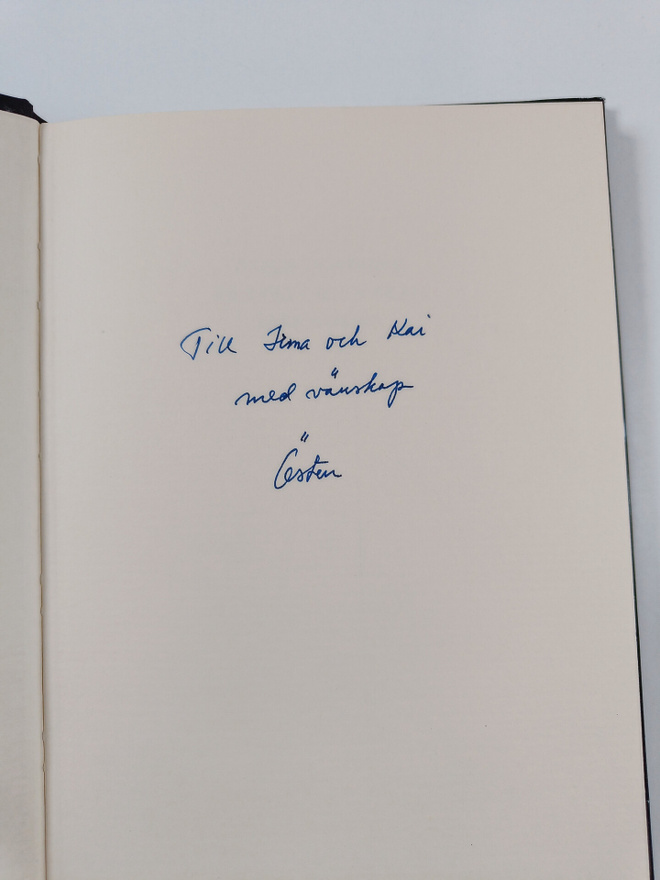 Till Irma och Kai
med vänskap
Östen